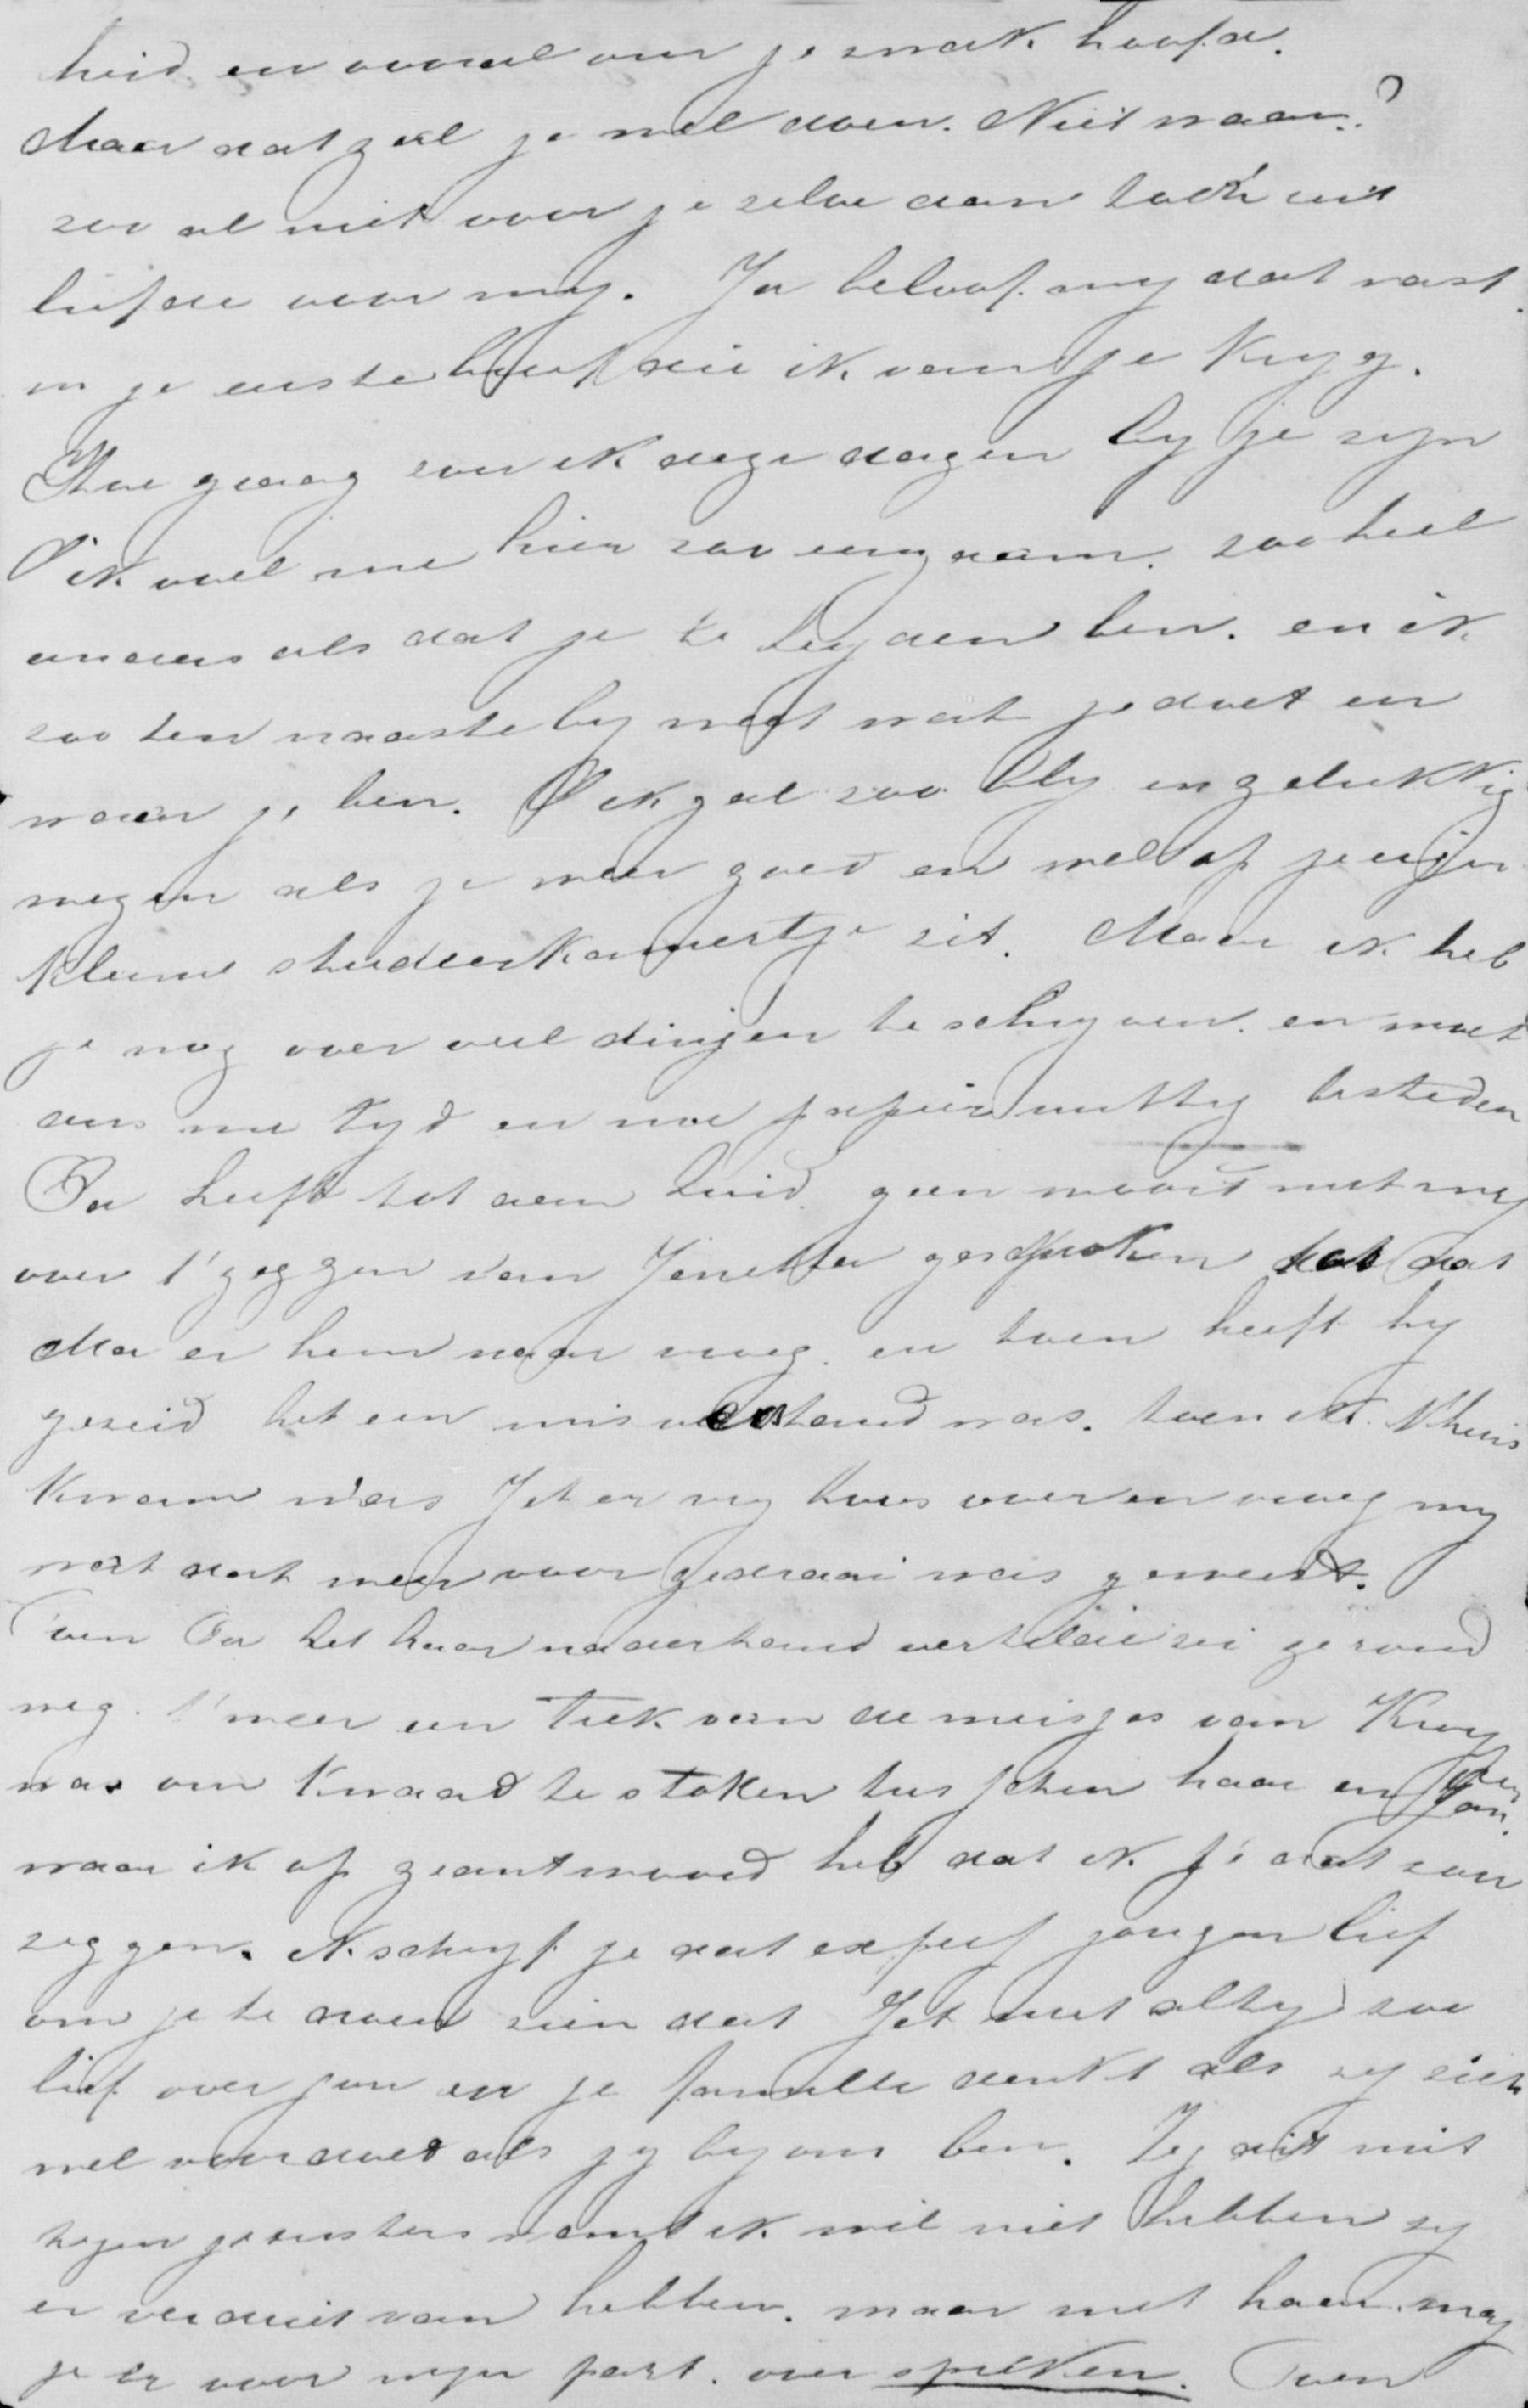 heid en vooral om je zwak hoofd.
Maar dat zul je wel doen. Niet waar?
zoo al niet voor je zelve dan toch uit
liefde voor my. Ja beloof my dat vast
in je eerste brief die ik van je kryg.
Hoe graag zou ik deze dagen by je zyn
O ik voel me hier zoo eenzaam. zoo heel
anders als dat je te Leyden ben. en ik
zoo ten naaste by weet wat je doet en
waar je ben. O ik zal zoo bly en gelukkig
wezen als je weer goed en wel op je eigen
kleine studeerkamertje zit. Maar ik heb
je nog over veel dingen te schryven. en moet
dus me tyd en me papier nuttig besteden
Pa heeft tot den huid geen woord met my
over t' zeggen van Jenetta gesproken dat
Ma er hem naar vroeg. en toen heeft hy
gezeid het een misverstand was. toen ik t'huis
kwam was Jet er nog boos over en vroeg my
wat dat weer voor gedraai was geweest.
Toen Pa het haar naderhand vertelde zei ze rond
weg. t' weer een trek van de meisjes van Kruy
was om kwaad te stoken tusschen haar en Jan.
waar ik op geantwoord heb dat ik je dat zou
zeggen. Ik schryf je dat expres jongen lief
om je te doen zien dat Jet niet altyd zoo
lief over jou en je familie denkt als zy zich
wel voordoet als jy by ons ben. Zeg dit niet
tegen je zusters want ik wil niet hebben zy
er verdriet van hebben. maar met haar mag
je er voor myn part. over spreken. Toen